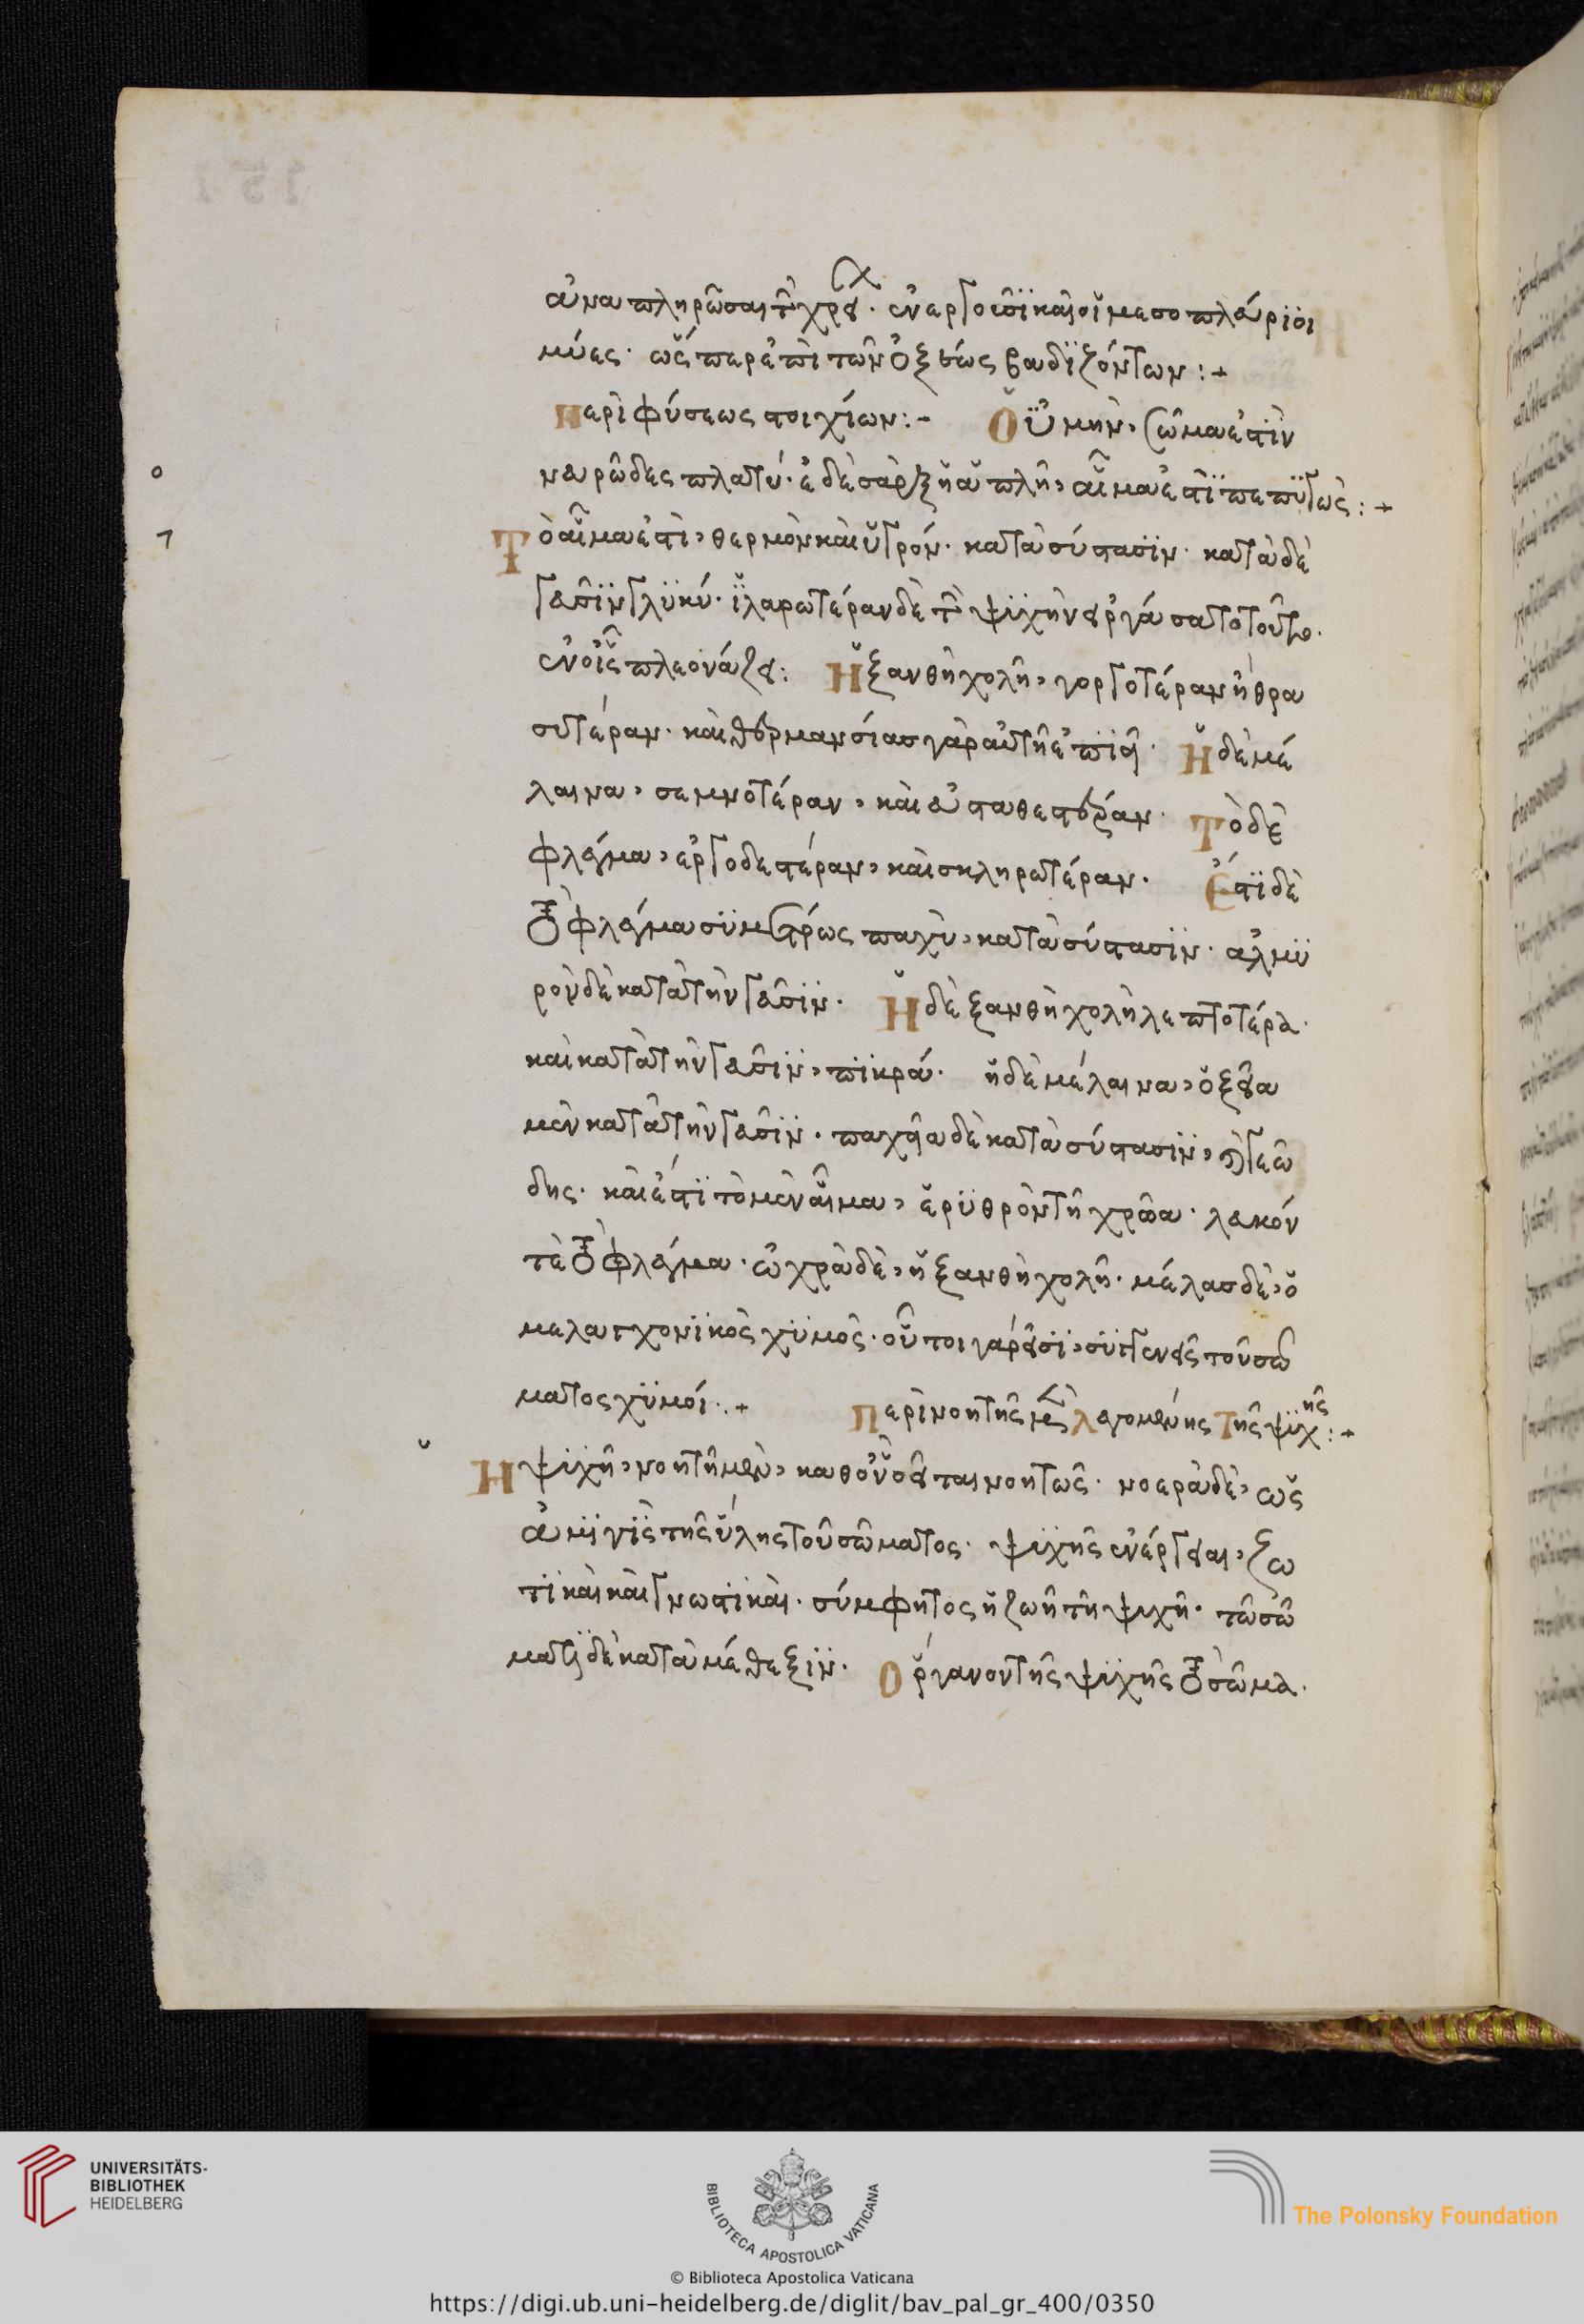 ἀναπληρῶσαι τὴν χρείαν. ἐνεργοῦσι καὶ οἱ μεσοπλεύριοι
μύες. ὥσπερ ἐπὶ τῶν ὀξέως βαδϊζόντων :+
Περὶ φύσεως στοιχίων :-  Ὁ ὑμὴν, σῶμα ἐστὶν
νευρῶδες πλατύ. ἡ δὲ σὰρξ ἡ ἁπλῆ, αἷμα ἐστὶ πεπηγὼς :+
Τὸ αἷμα ἐστὶ, θερμὸν καὶ ὑγρόν. κατὰ σύστασϊν. κατὰ δὲ
γεῦσϊν γλϋκύ. ἱλαρωτέραν δὲ τὴν ψϋχὴν εἰργάσατο τοῦτο.
ἐν οἷς πλεονάζει: Ἡ ξανθὴ χολὴ, γοργοτέραν ἢ θρα
συτέραν. καὶ θερμανσίας γὰρ αὐτῆ ἔπεστι. Ἡ δὲ μέ
λαινα, σεμνοτέραν, καὶ εὐσταθεστέραν. Τὸ δὲ
φλέγμα, ἀργοδεστέραν, καὶ σκληρωτέραν. Ἔστϊ δὲ
τὸ φλέγμα συμμέτρως παχὺ, κατὰ σύστασϊν. ἁλμϋ
ρὸν δὲ κατὰ τὴν γεῦσϊν. Ἡ δὲ ξανθὴ χολὴ λεπτοτέρα.
καὶ κατὰ τὴν γεῦσϊν, πϊκρά. ἡ δὲ μέλαινα, ὀξεῖα
μὲν κατὰ τὴν γεῦσϊν. παχεῖα δὲ κατὰ σύστασϊν,
δης. καὶ ἔστϊ τὸ μὲν αἷμα, ἐρϋθρὸν τῆ χροῖα. λευκόν
τε τὸ φλέγμα. ὠχρὰ δὲ, ἡ ξανθὴ χολὴ. μέλας δὲ, ὁ
μελαγχονϊκὸς χϋμὸς. οὗτοι γάρ εἰσϊ, συγγενεῖς τοῦ σώ
ματος χϋμοί :+  Περὶ νοητῆς μὲν λεγομένης τῆς ψϋχῆς :+
Ἡ ψϋχὴ, νοητὴ μὲν, καθ' οὗ νοεῖται νοητῶς. νοερὰ δὲ, ὡς
ἀμϊγὶς τῆς ὕλης τοῦ σώματος. ψϋχῆς ἐνέργειαι, ζω
τϊκαὶ καὶ γνωστϊκαὶ. σύμφητος ἡ ζωὴ τῆ ψυχῆ. τῶ σώ
ματϊ δὲ κατὰ μέθεξϊν. Ὄργανον τῆς ψϋχῆς τὸ σῶμα.
UNIVERSITÄTS-
BIBLIOTHEK
HEIDELBERG
BIBLIOTECA APOSTOLICA VATICANA
The Polonsky Foundation
© Biblioteca Apostolica Vaticana
https://digi.ub.uni-heidelberg.de/diglit/bav_pal_gr_400/0350